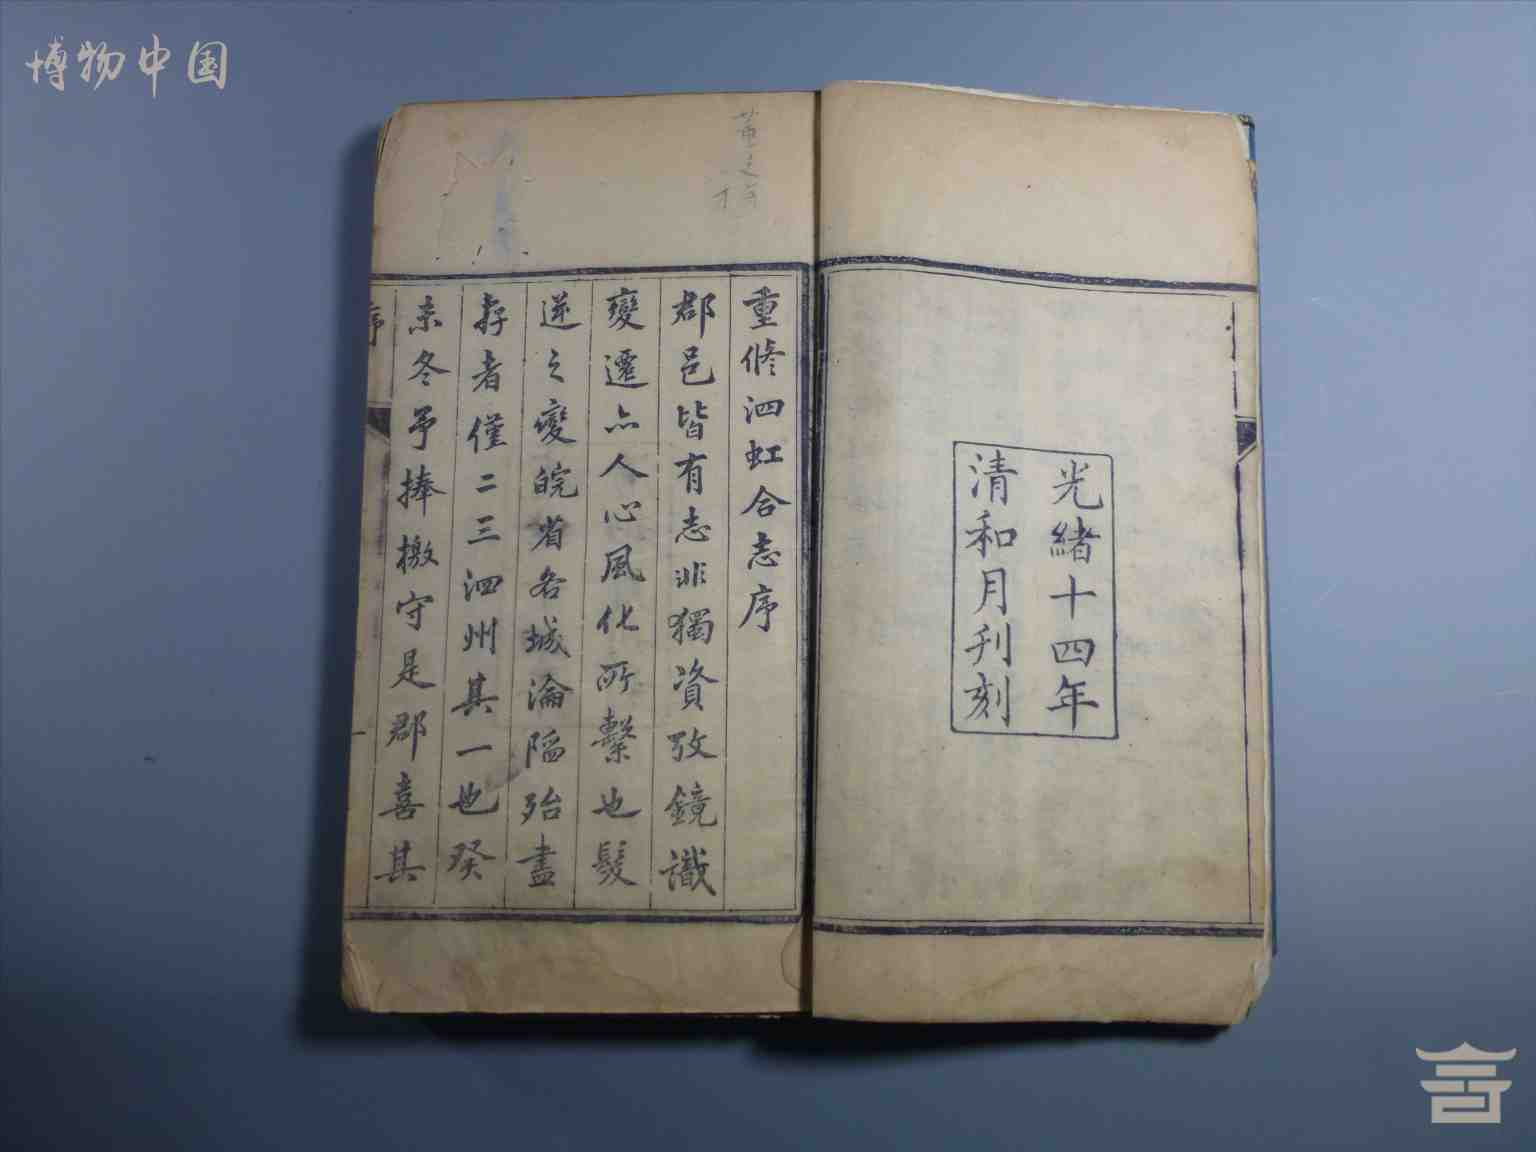 博物中国
光緒十四年
清和月刊刻
重修泗虹合志序
郡邑皆有志非獨資攷鏡識
變遷亦人心風化所繫也髮
逆之變皖省各城淪陷殆盡
存者僅二三泗州其一也癸
亥冬予捧檄守是郡喜其
序